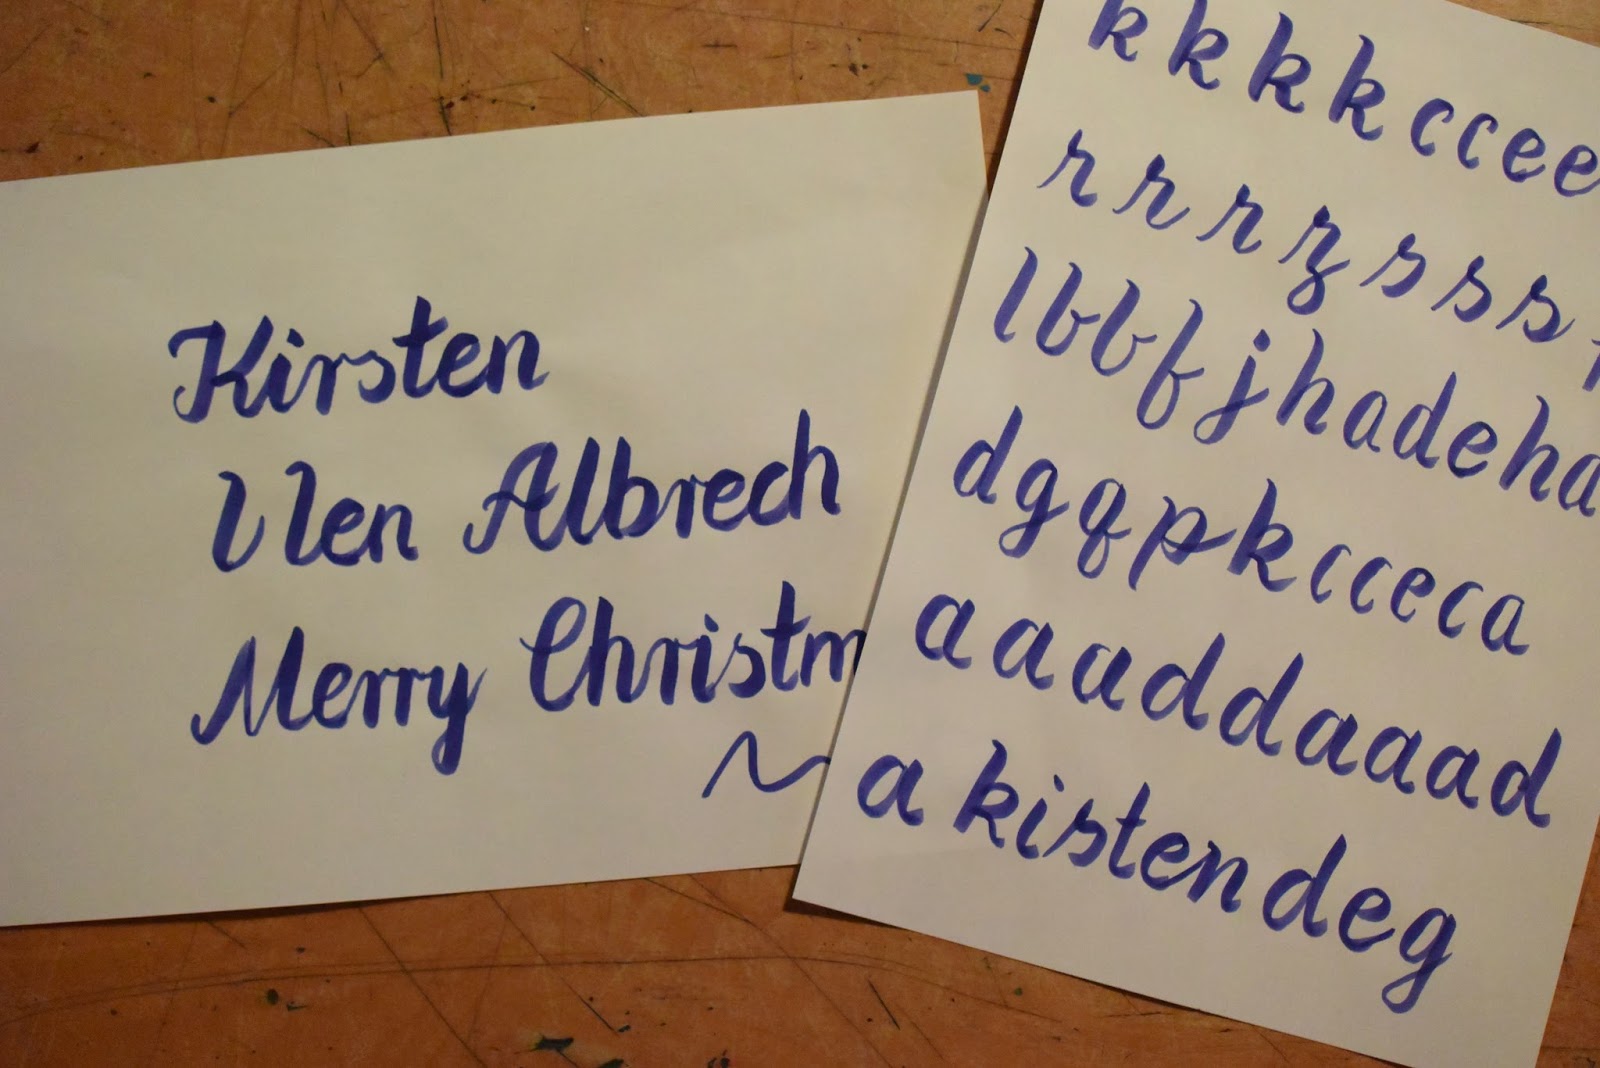 Kirsten
l len Albrech
Merry Christm
k k k k c c e e
r r r z s s s
l b b f j h a d e h a
d g q p k c c e c a
a a a d d a a a d
a kisten d e g